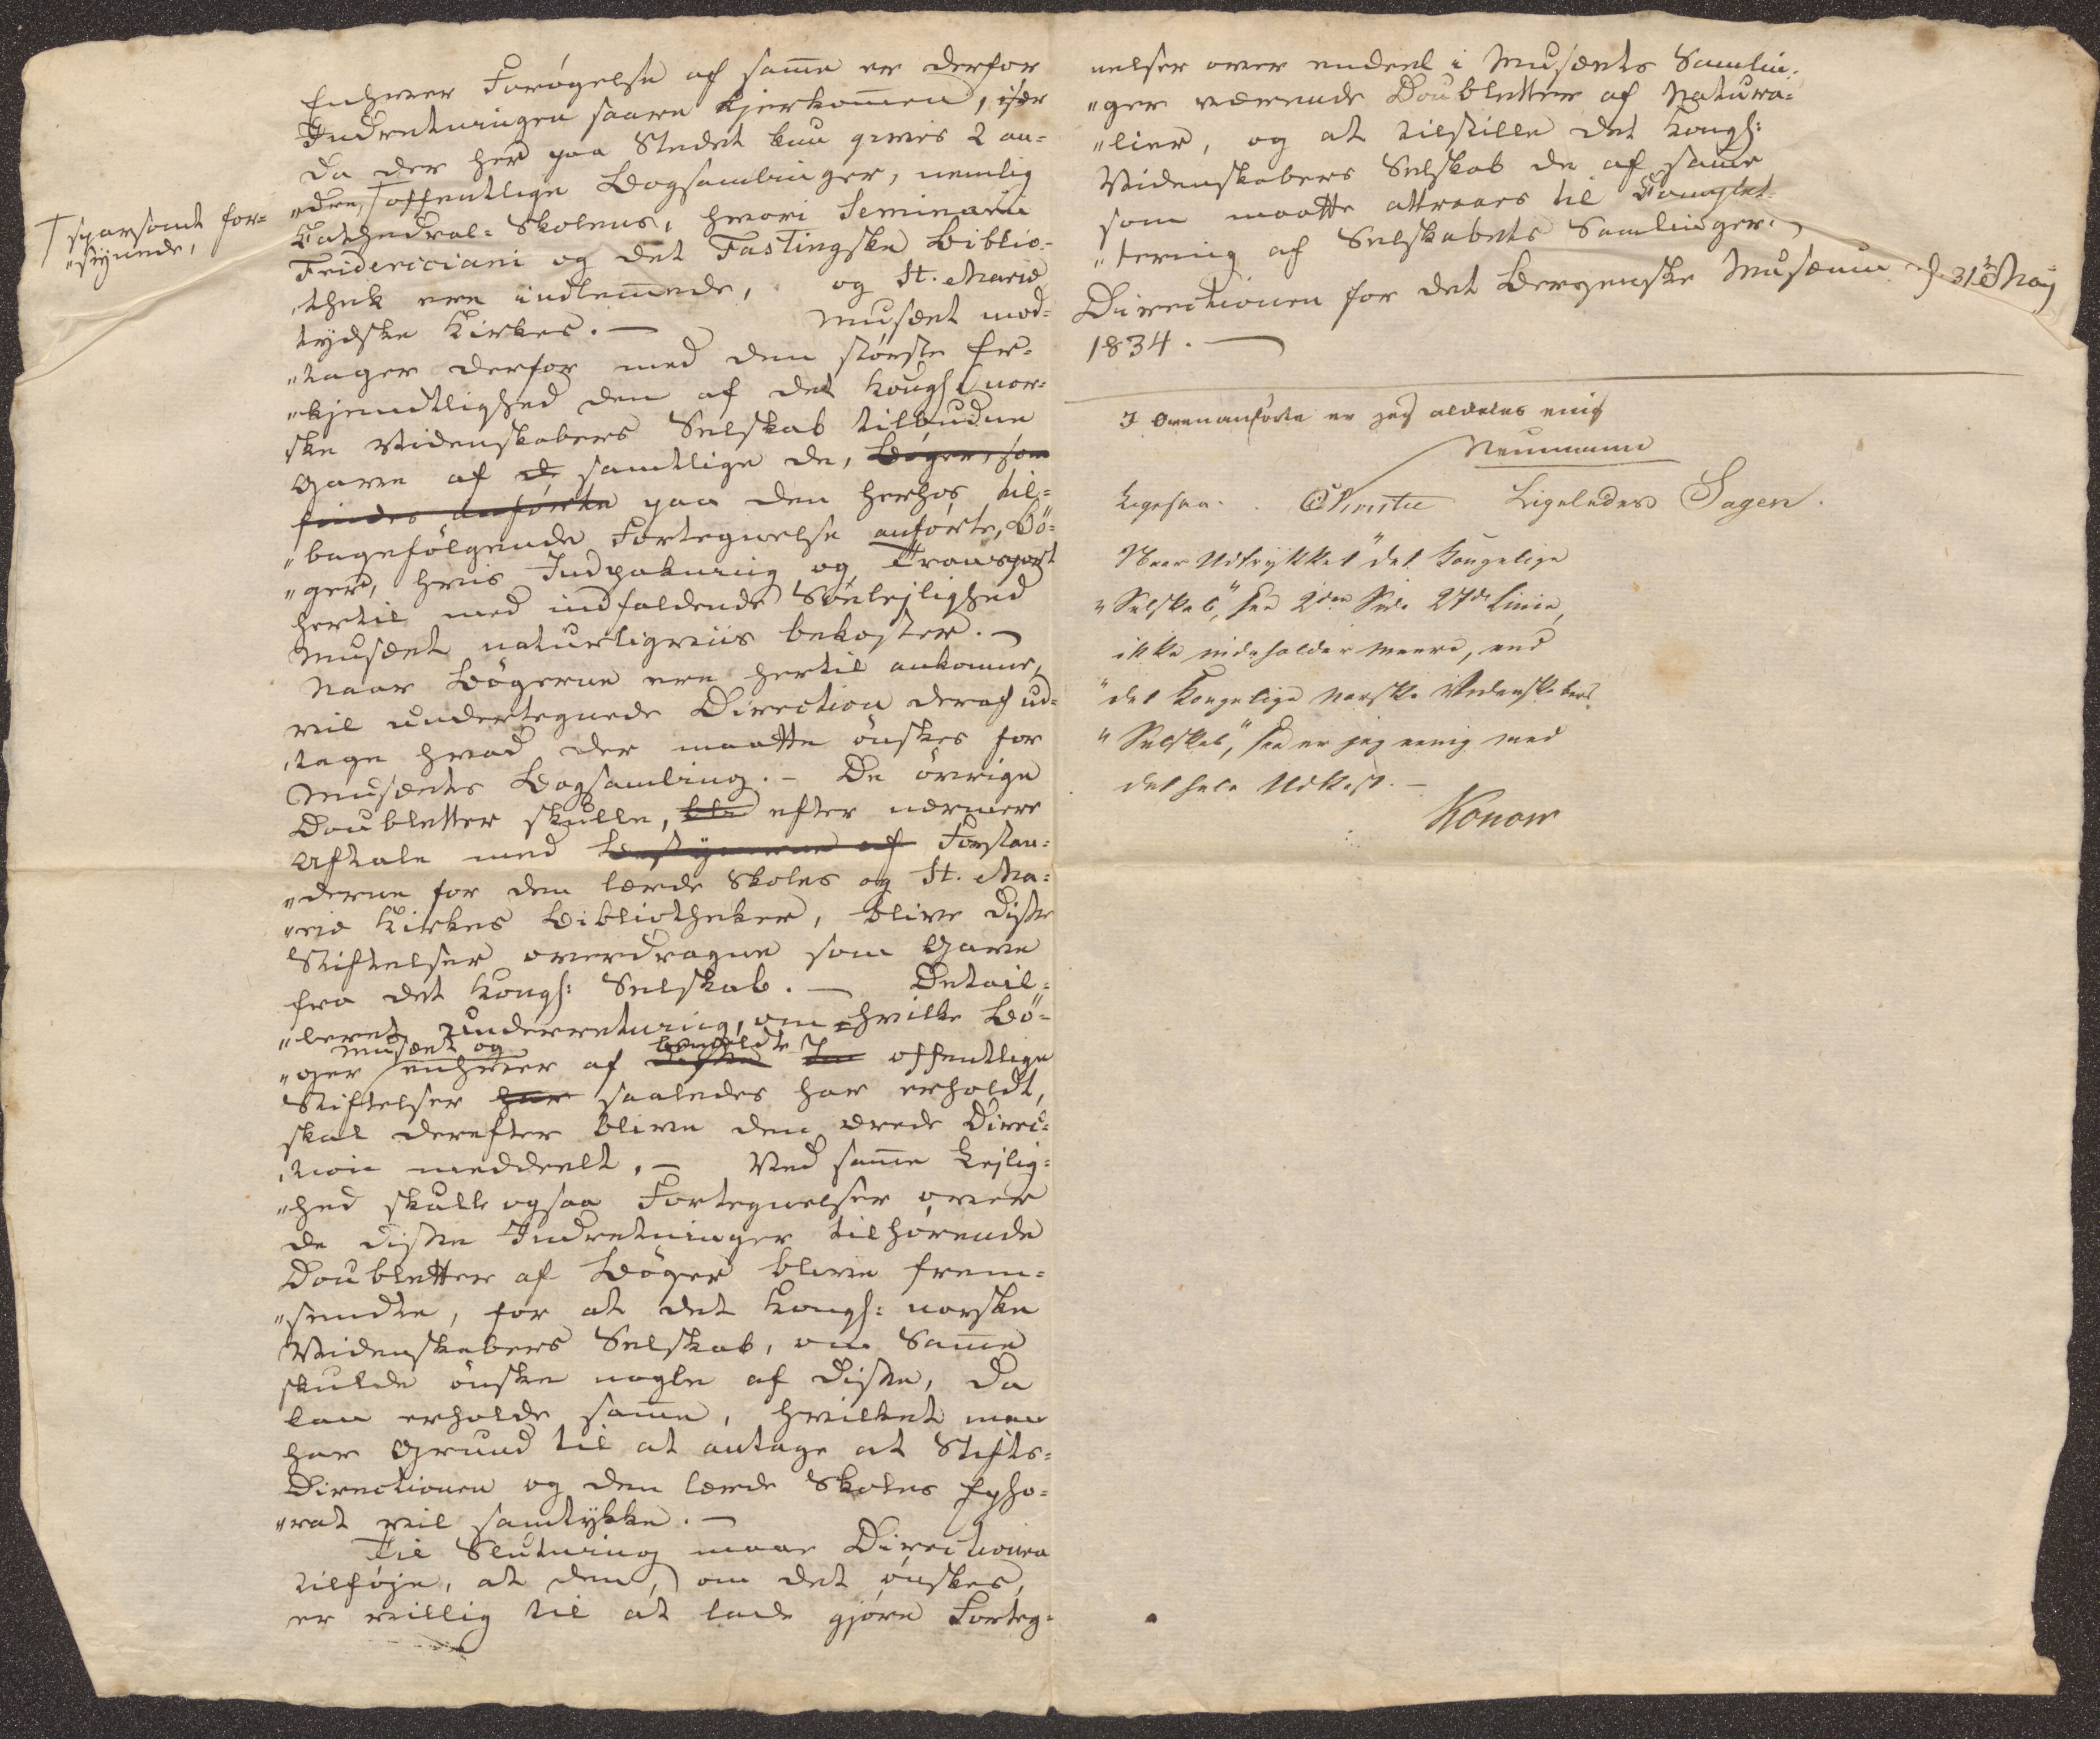 Enhver Forøgelse af samme er derfor
Indretningen saare kjerkommen, især
da der her paa Stedet kun gives 2 an=
"dre, ⊤ offentlige Bogsamlinger, nemlig
⊤ sparsomt for=
"synede,
Cathedral=Skolens, hvori Seminarii
Fridericiani og det Fastingske Biblio=
"thek ere indlemmede, og St. Mariæ
tydske Kirkes. — Musæet mod=
"tager derfor med den største Er=
"kjendtlighed den af det Kongl: nor=
ske Videnskabers Selskab tilbudne
Gave af de samtlige de, Bøger, som
findes anførte paa den herhos til=
"bagefølgende Fortegnelse anførte, Bö=
"ger, hvis Indpakning og Transport
hertil med indfaldende Søelejlighed
Musæet naturligviis bekoster. —
Naar Bögerne ere hertil ankomne,
vil undertegnede Direction deraf ud=
"tage hvad der maatte önskes for
Musæets Bogsamling. — De övrige
Doubletter skulle, efter nærmere
Aftale med Bestyrerne af Forstan=
"derne for den lærde Skoles og St. Ma=
"riæ Kirkes Bibliotheker, blive disse
Stiftelser overdragne som Gave
fra det Kongl: Selskab. — Detail=
"leret Underretning, om hvilke Bö=
Musæet og bemeldte
"ger enhver af disse offentlige
Stiftelser har saaledes har erholdt,
skal derefter blive den ærede Direc=
"tion meddeelt. — Ved samme Lejlig=
"hed skulle ogsaa Fortegnelser over
de disse Indretninger tilhörende
Doubletter af Böger blive frem=
"sendte, for at det Kongl: norske
Videnskabers Selskab, om Samme
skulde önske nogle af disse, da
kan erholde samme, hvilket man
har Grund til at antage at Stifts=
Directionen og den lærde Skoles Epho=
"rat vil samtykke. —
Til Slutning maae Directionen
tilföje, at den, om det önskes,
er villig til at lade gjöre Forteg=
nelser over endeel i Musæets Samlin=
"ger værende Doubletter af Natura=
"lier, og at tilstille det Kongl:
Videnskabers Selskab de af samme
som maatte attraaes til Complet=
"tering af Selskabets Samlinger. —
Directionen for det Bergenske Musæum d. 31te May
1834. —
I Ovenanførte er jeg aldeles enig
Neumann
Ligesaa. Christie Ligeledes Sagen.
Naar Udtrykket "det Kongelige
"Selskab", paa 2den Side 27de Linie,
ikke indeholder meere, end
"det Kongelige norske Videnskabers
"Selskab", saa er jeg eenig med
det hele Udkast. —
Konow